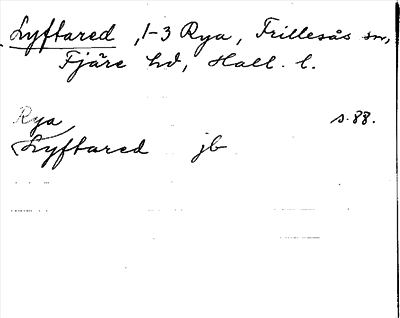 Lyftared, 1-3 Rya, Frillesås sn,
Fjäre hd, Hall. l.
Rya s. 88.
Lyftared jb